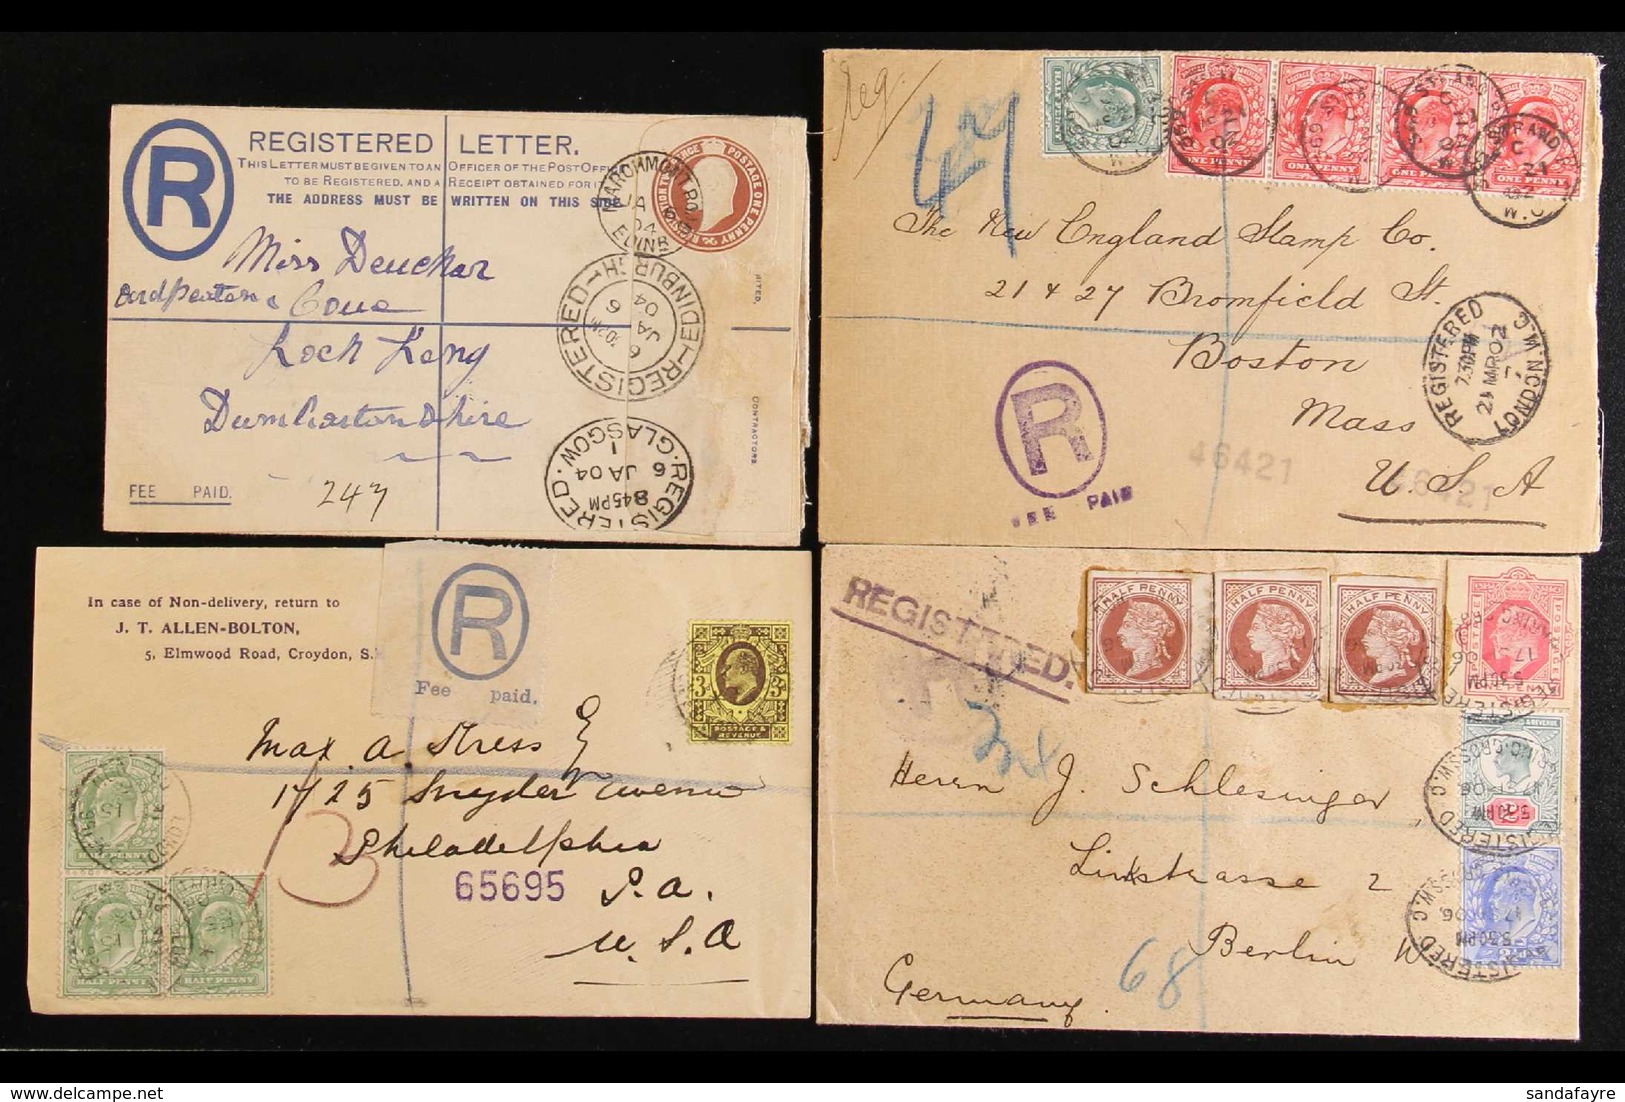 REGISTERED LETTER.
THIS LETTER MUST BE GIVEN TO AN OFFICER OF THE POST OFFICE
TO BE REGISTERED, AND A RECEIPT OBTAINED FOR IT
THE ADDRESS MUST BE WRITTEN ON THIS SIDE
R
POSTAGE ONE PENNY
MARCHMONT RD
JA 6
04
EDINR
Miss Deuchar
Cove
Loch Long
Dumbartonshire
REGISTERED EDINBURGH
6
JA
04
REGISTERED. R. GLASGOW.
8 45PM
6 JA 04
1
FEE PAID.
247
CONTRACTORS
Reg.
ONE PENNY
ONE PENNY
ONE PENNY
ONE PENNY
STRAND
W.C
The New England Stamp Co.
21 & 27 Bromfield St.
Boston
Mass
U. S. A
REGISTERED
7.30PM
21 MAR 02
LONDON.W.C
R
FEE PAID
46421
46421
In case of Non-delivery, return to
J. T. ALLEN-BOLTON,
5, Elmwood Road, Croydon, S.
R
Fee paid.
3D
POSTAGE & REVENUE
Max. A. Stress Esq
1725 Snyder Avenue
Philadelphia
P.A.
U.S.A
65695
3
HALF PENNY
HALF PENNY
HALF PENNY
REGISTERED.
HALF PENNY
HALF PENNY
HALF PENNY
REGISTERED
17 SP 06
5.30PM
CHARING CROSS.W.C.
Herrn J. Schlesinger
Linkstrasse 2
Berlin W
Germany
68
sandafayre